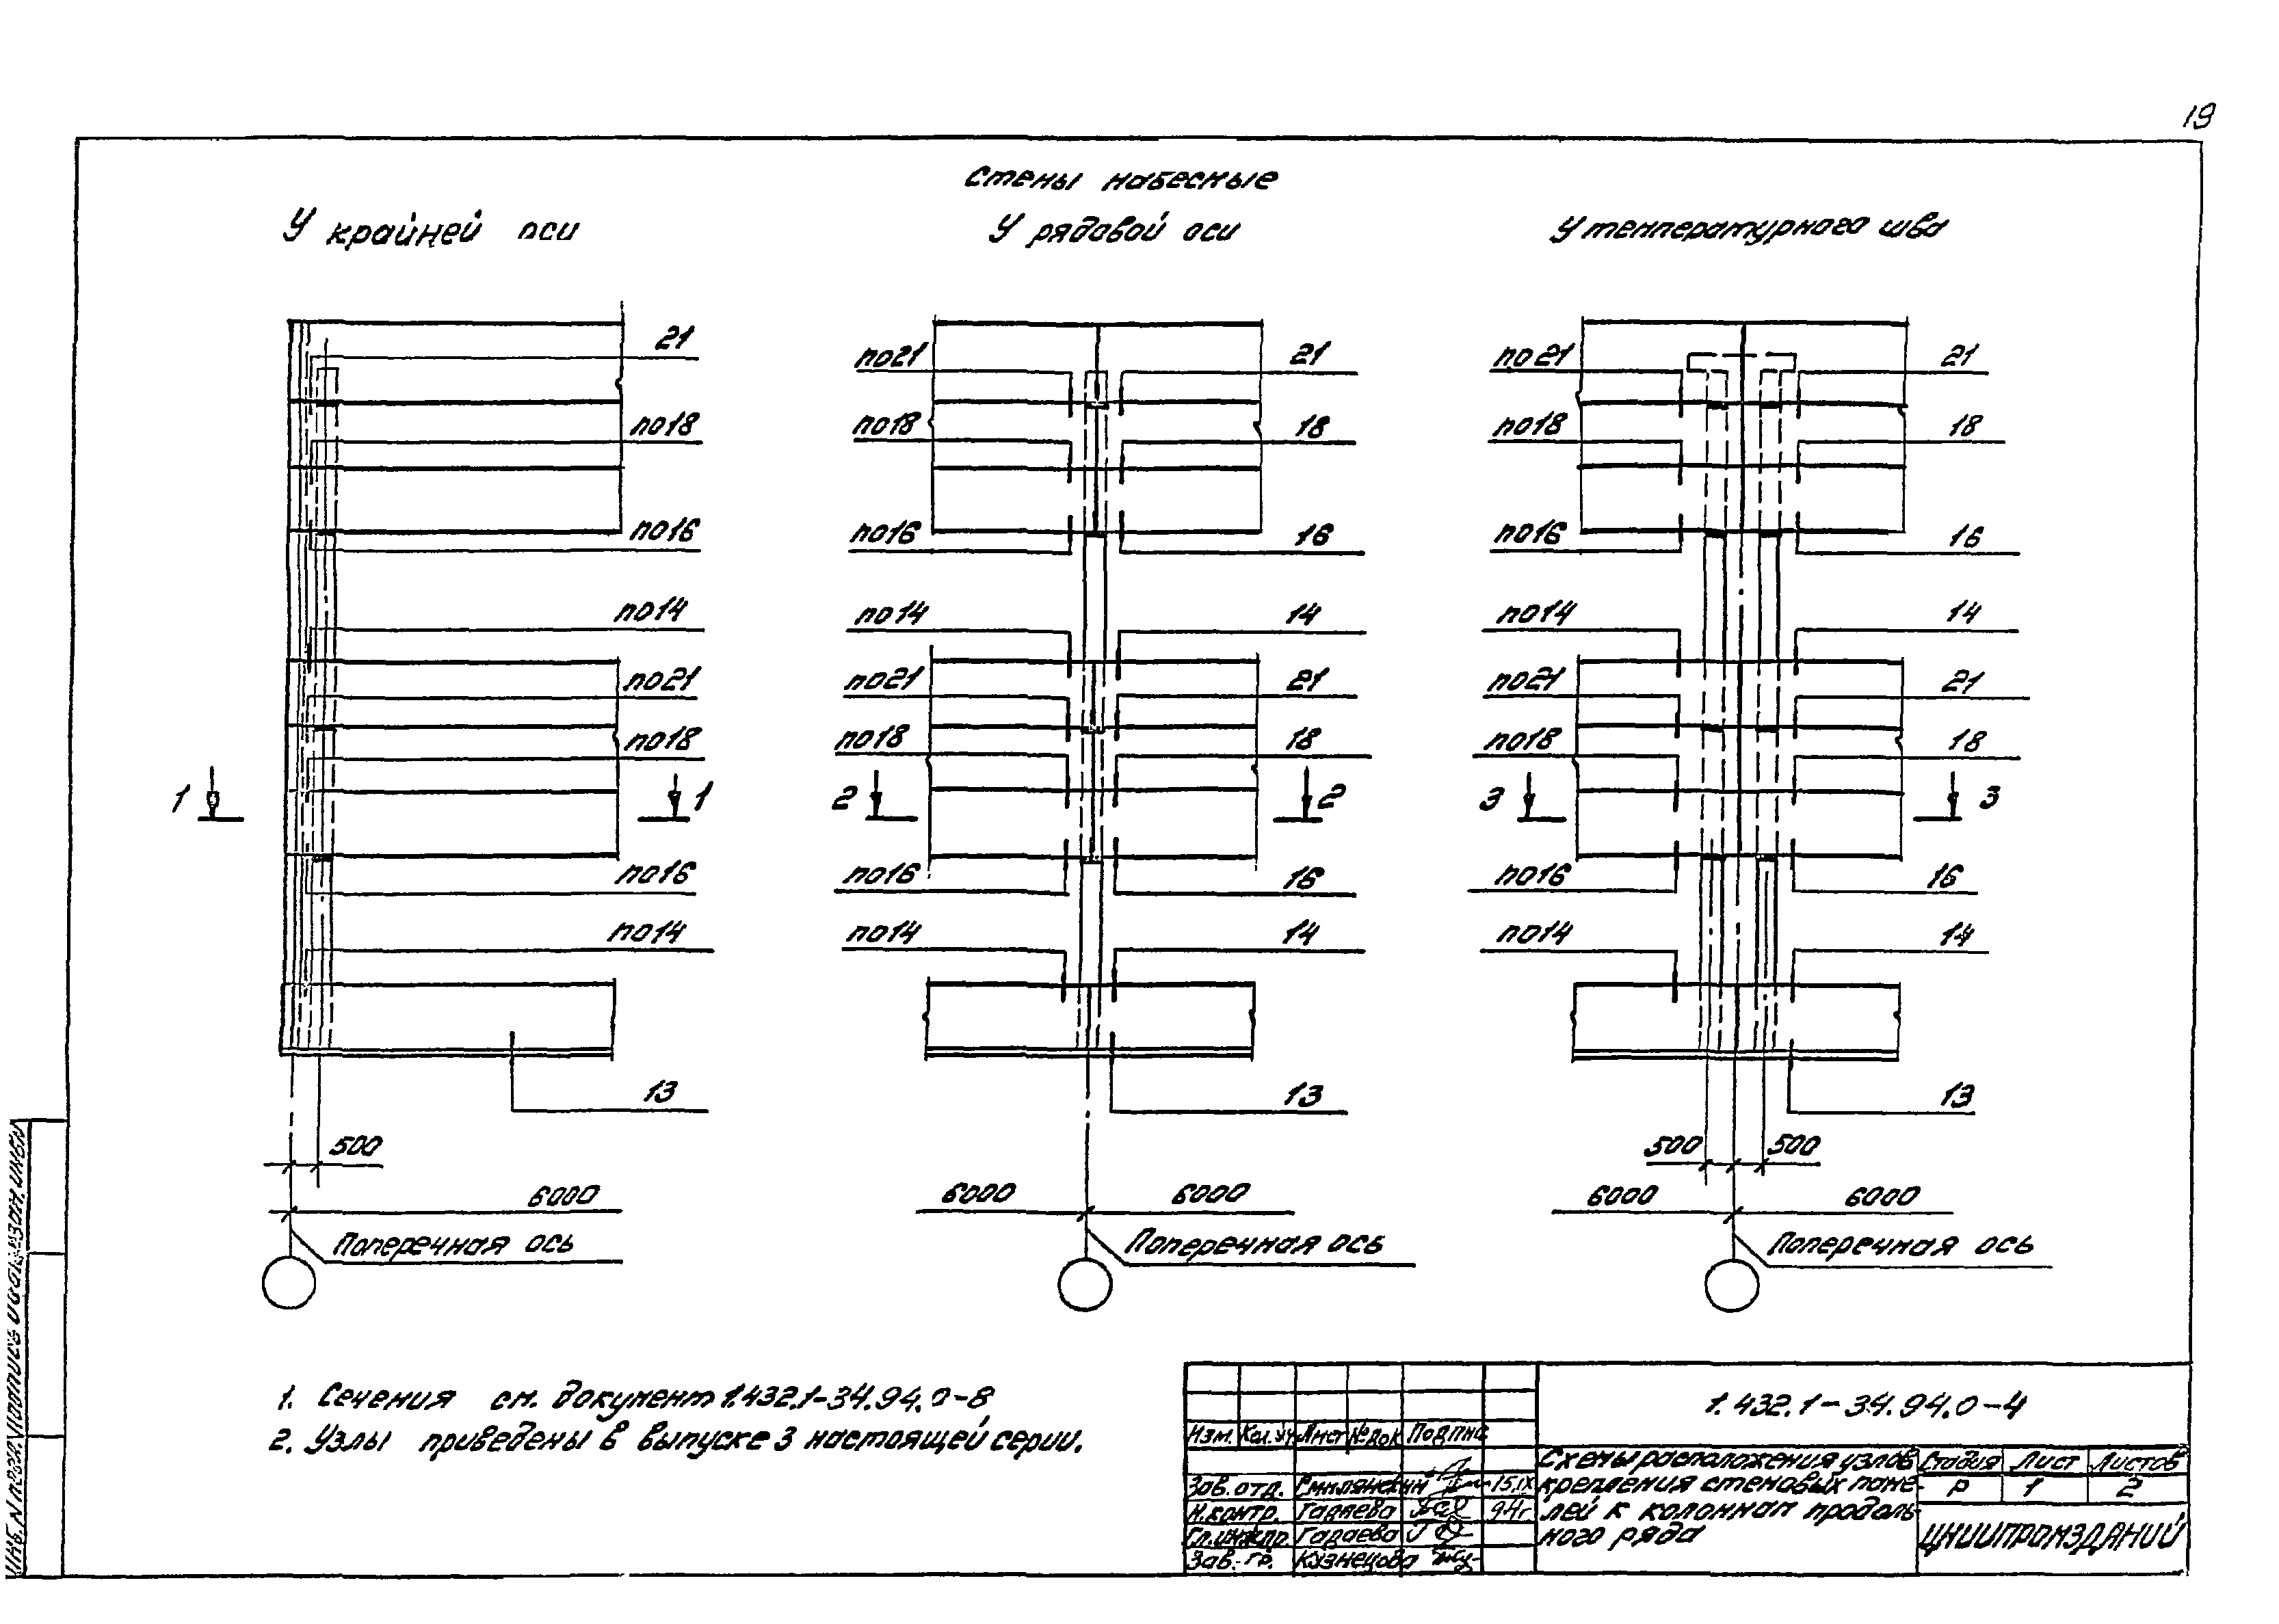 19
Стены навесные
У крайней оси
У рядовой оси
У температурного шва
21
по18
по16
по14
по21
по18
1 1
по16
по14
13
500
6000
Поперечная ось
по21 21
по18 18
по16 16
по14 14
по21 21
по18 18
2 2
по16 16
по14 14
13
6000 6000
Поперечная ось
по21 21
по18 18
по16 16
по14 14
по21 21
по18 18
3 3
по16 16
по14 14
13
500 500
6000 6000
Поперечная ось
1. Сечения см. документ 1.432.1-34.94.0-8
2. Узлы приведены в выпуске 3 настоящей серии.
1.432.1-34.94.0-4
Изм. Кол.уч Лист №док Подпис
Зав. отд. Смилянский 15.IX
Н.контр. Гадаева 94г.
Гл.инж.пр. Гадаева
Зав. гр. Кузнецова
Схемы расположения узлов
крепления стеновых пане-
лей к колоннам продоль-
ного ряда
Стадия Лист Листов
Р 1 2
ЦНИИПРОМЗДАНИЙ
Инв. N подл. Подпись и дата Взам. инв.N